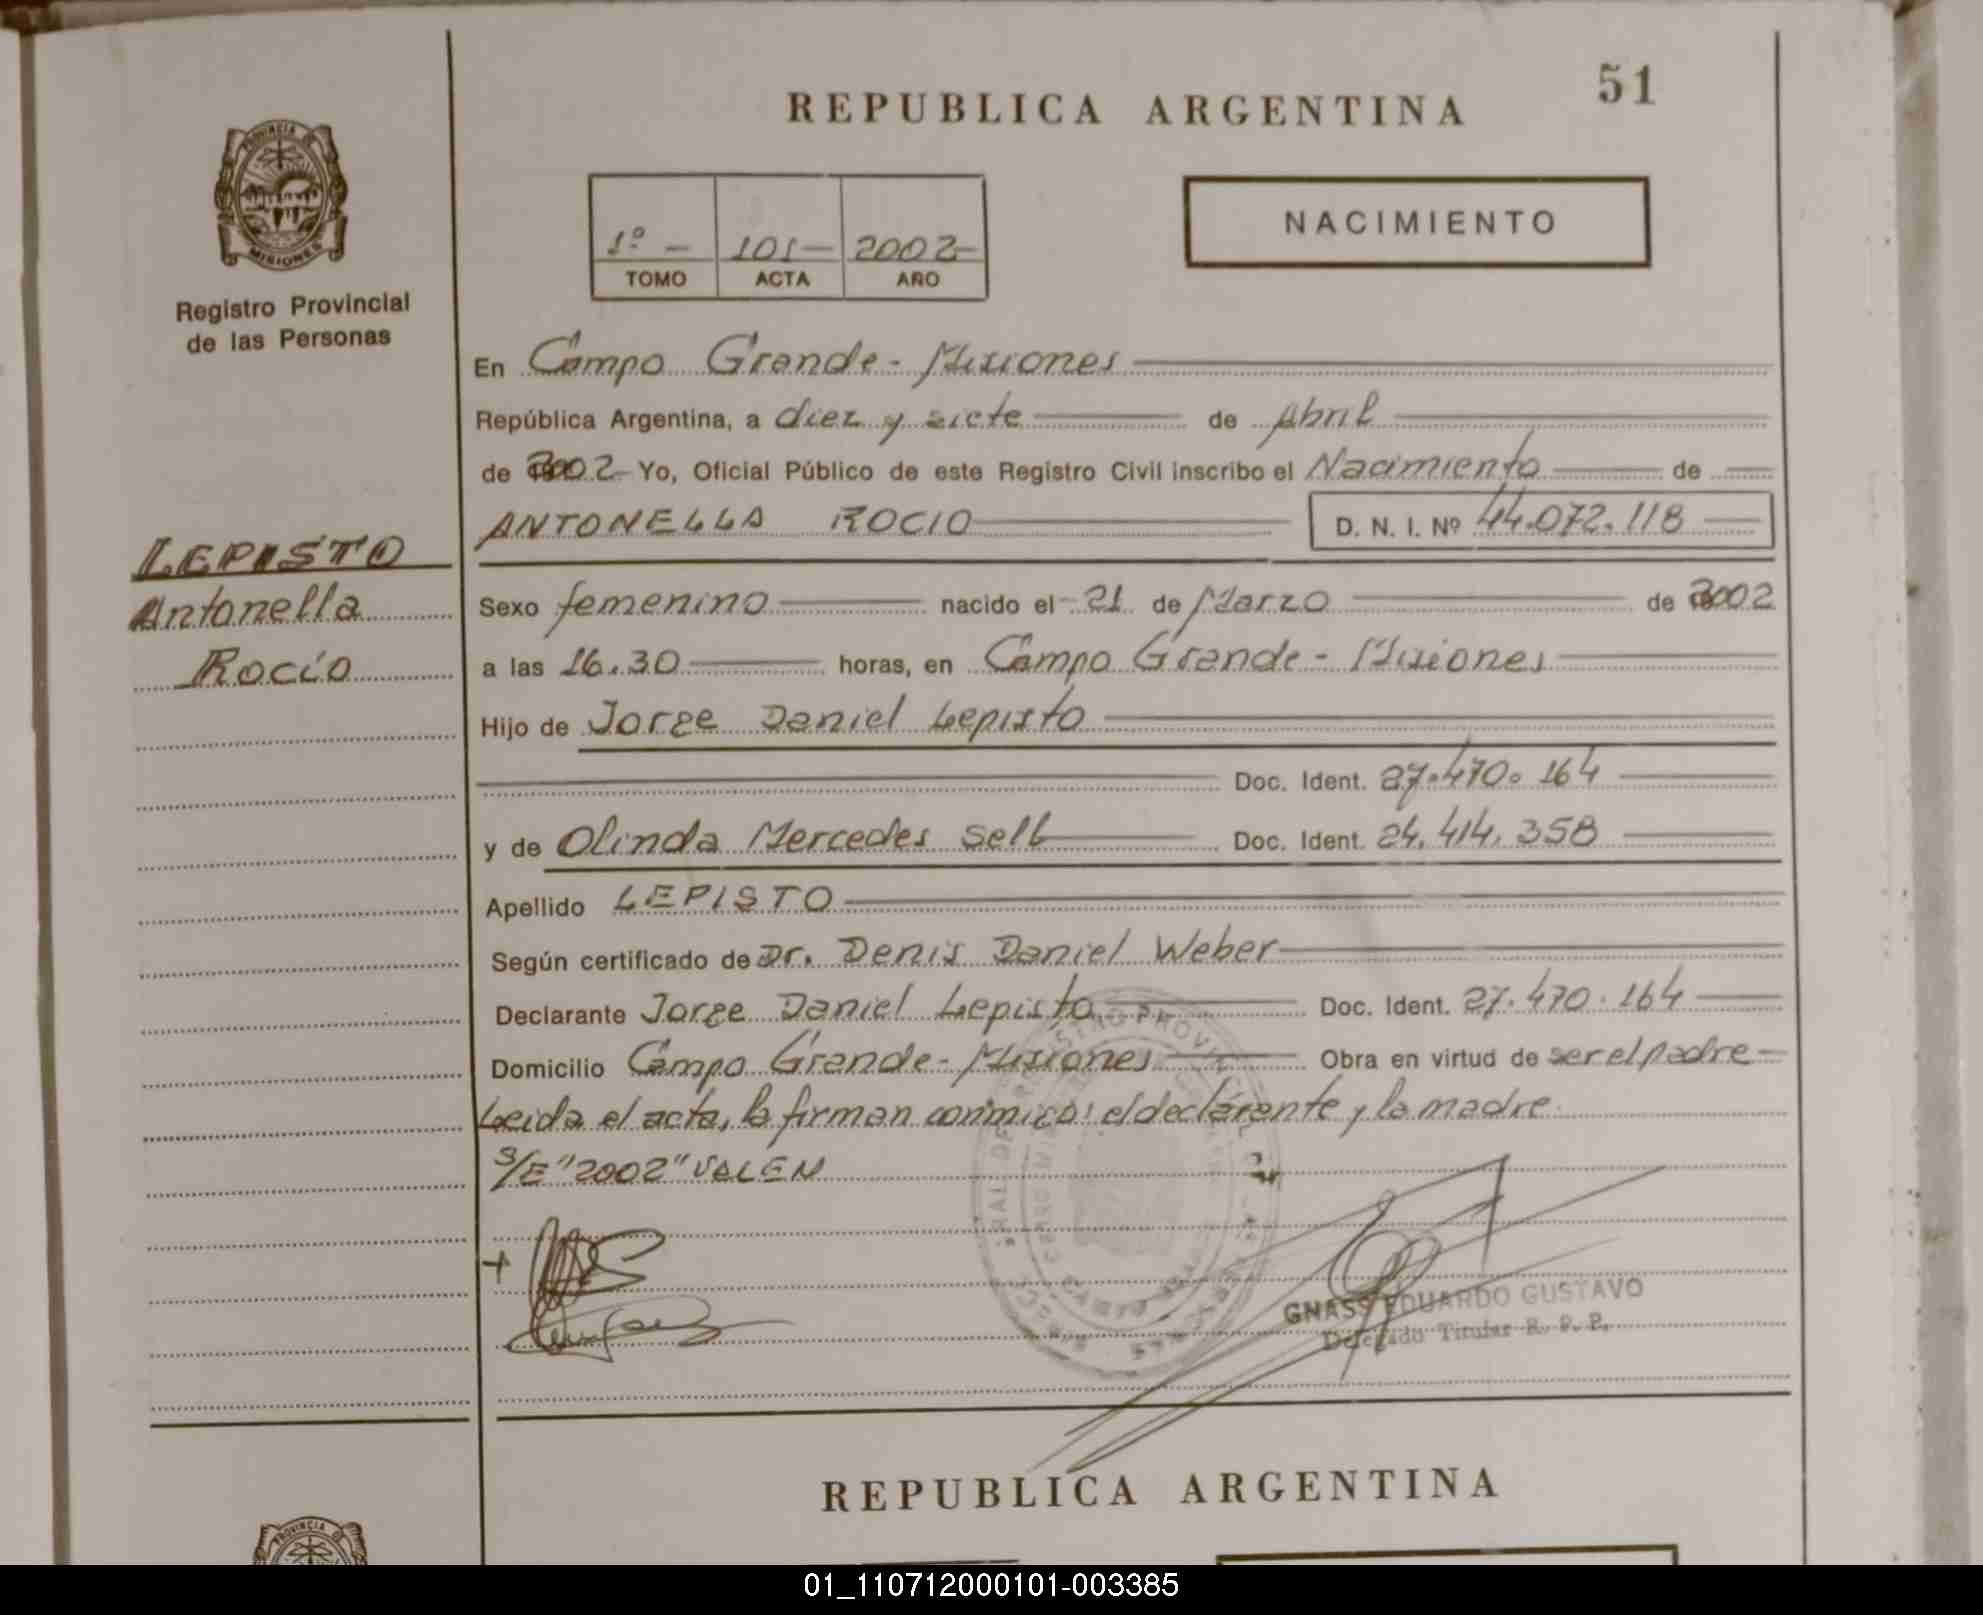 51
REPUBLICA ARGENTINA
PROVINCIA DE
MISIONES
Registro Provincial
de las Personas
1º - 101- 2002-
TOMO ACTA AÑO
NACIMIENTO
En Campo Grande - Misiones
República Argentina, a diez y siete de Abril
de 2002 - Yo, Oficial Público de este Registro Civil inscribo el Nacimiento de
ANTONELLA ROCIO D. N. I. Nº 44.072.118
LEPISTO
Antonella
Rocío
Sexo femenino nacido el 21 de Marzo de 2002
a las 16.30 horas, en Campo Grande - Misiones
Hijo de Jorge Daniel Lepisto
Doc. Ident. 27.470.164
y de Olinda Mercedes Sell Doc. Ident. 24.414.358
Apellido LEPISTO
Según certificado de Dr. Denis Daniel Weber
Declarante Jorge Daniel Lepisto Doc. Ident. 27.470.164
Domicilio Campo Grande - Misiones Obra en virtud de ser el padre -
Leida el acta, la firman conmigo: el declarante y la madre
S/E "2002" VALEN
GNASS EDUARDO GUSTAVO
Delegado Titular R. P. P.
REPUBLICA ARGENTINA
PROVINCIA DE
01_110712000101-003385